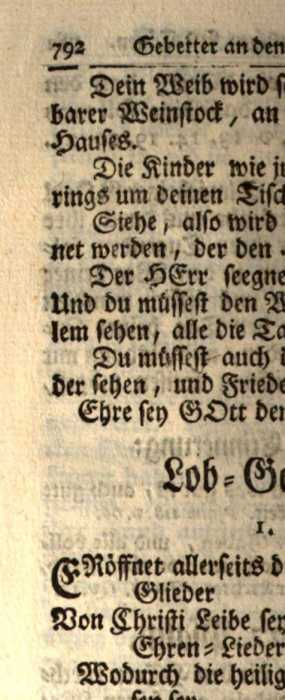 792 Gebetter an den
Dein Weib wird
barer Weinstock, an
Hauses.
Die Kinder wie
rings um deinen Tisch
Siehe, also wird
net werden, der den
Der HErr seegne
Und du müssest den
lem sehen, alle die
Du müssest auch
der sehen, und Friede
Ehre sey GOtt
Lob-
1.
ERöffnet allerseits
Glieder
Von Christi Leibe
Ehren-Lieder
Wodurch die heilig